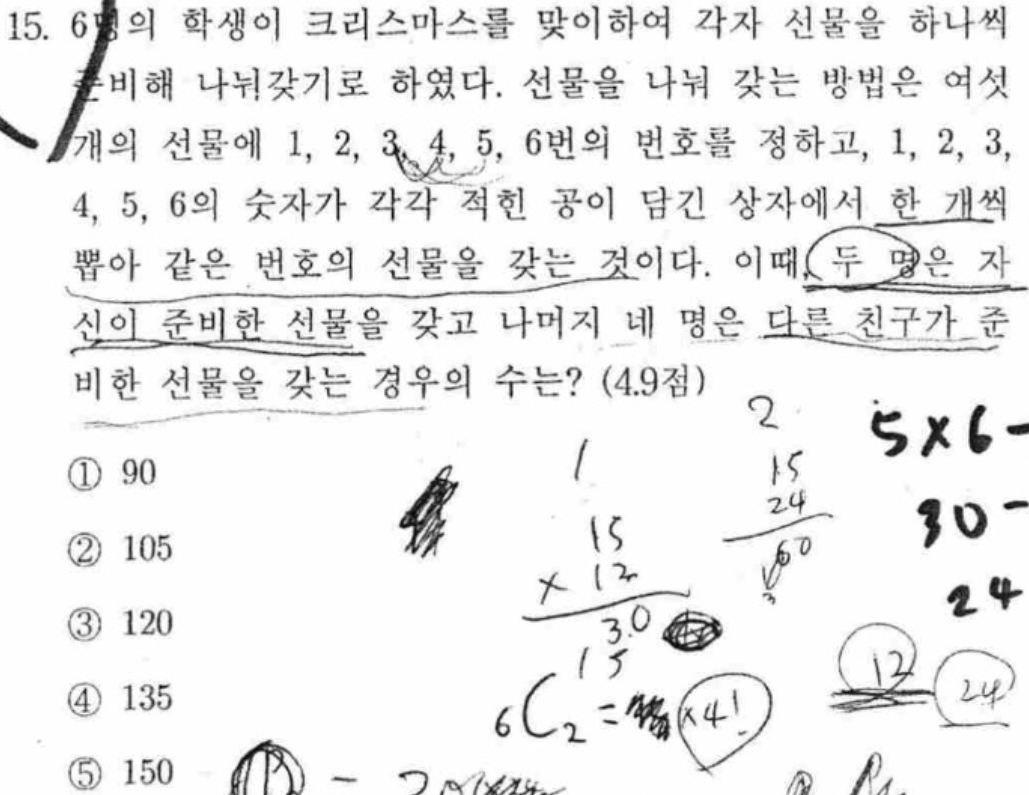 15. 6명의 학생이 크리스마스를 맞이하여 각자 선물을 하나씩
준비해 나눠갖기로 하였다. 선물을 나눠 갖는 방법은 여섯
개의 선물에 1, 2, 3, 4, 5, 6번의 번호를 정하고, 1, 2, 3,
4, 5, 6의 숫자가 각각 적힌 공이 담긴 상자에서 한 개씩
뽑아 같은 번호의 선물을 갖는 것이다. 이때, 두 명은 자
신이 준비한 선물을 갖고 나머지 네 명은 다른 친구가 준
비한 선물을 갖는 경우의 수는? (4.9점)
① 90
② 105
③ 120
④ 135
⑤ 150
1
15
× 12
30
15
6C2 = ×4!
2
15
24
60
5×6-
30-
24
12
24